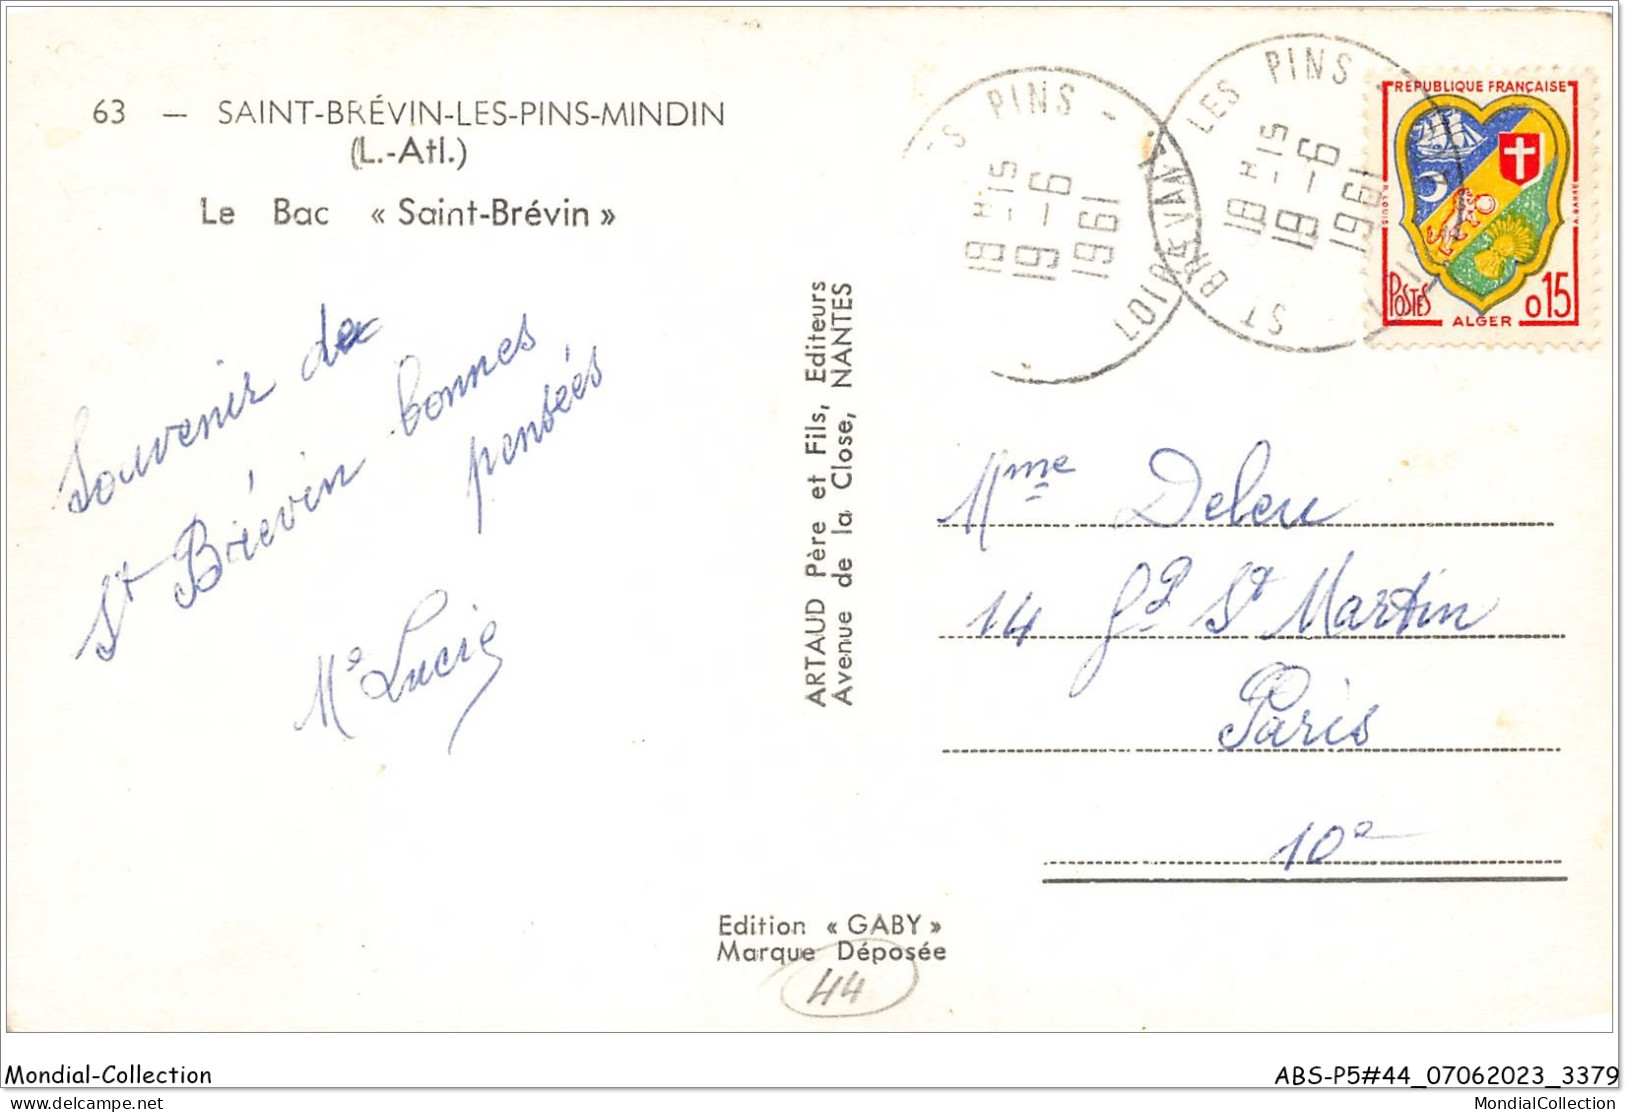 63 — SAINT-BRÉVIN-LES-PINS-MINDIN
(L.-Atl.)
Le Bac « Saint-Brévin »
Souvenir de
St Brévin bonnes
pensées
Me Lucie
ARTAUD Père et Fils, Editeurs
Avenue de la Close, NANTES
Edition « GABY »
Marque Déposée
44
S PINS -
18 H 15
19 - 6
1961
LOIRE
ST BREVIN LES PINS
18 H 15
19 - 6
1961
REPUBLIQUE FRANÇAISE
POSTES
0,15
ALGER
Mme Deleu
14 Gd St Martin
Paris
10e
Mondial-Collection
ABS-P5#44_07062023_3379
delcampe.net
MondialCollection